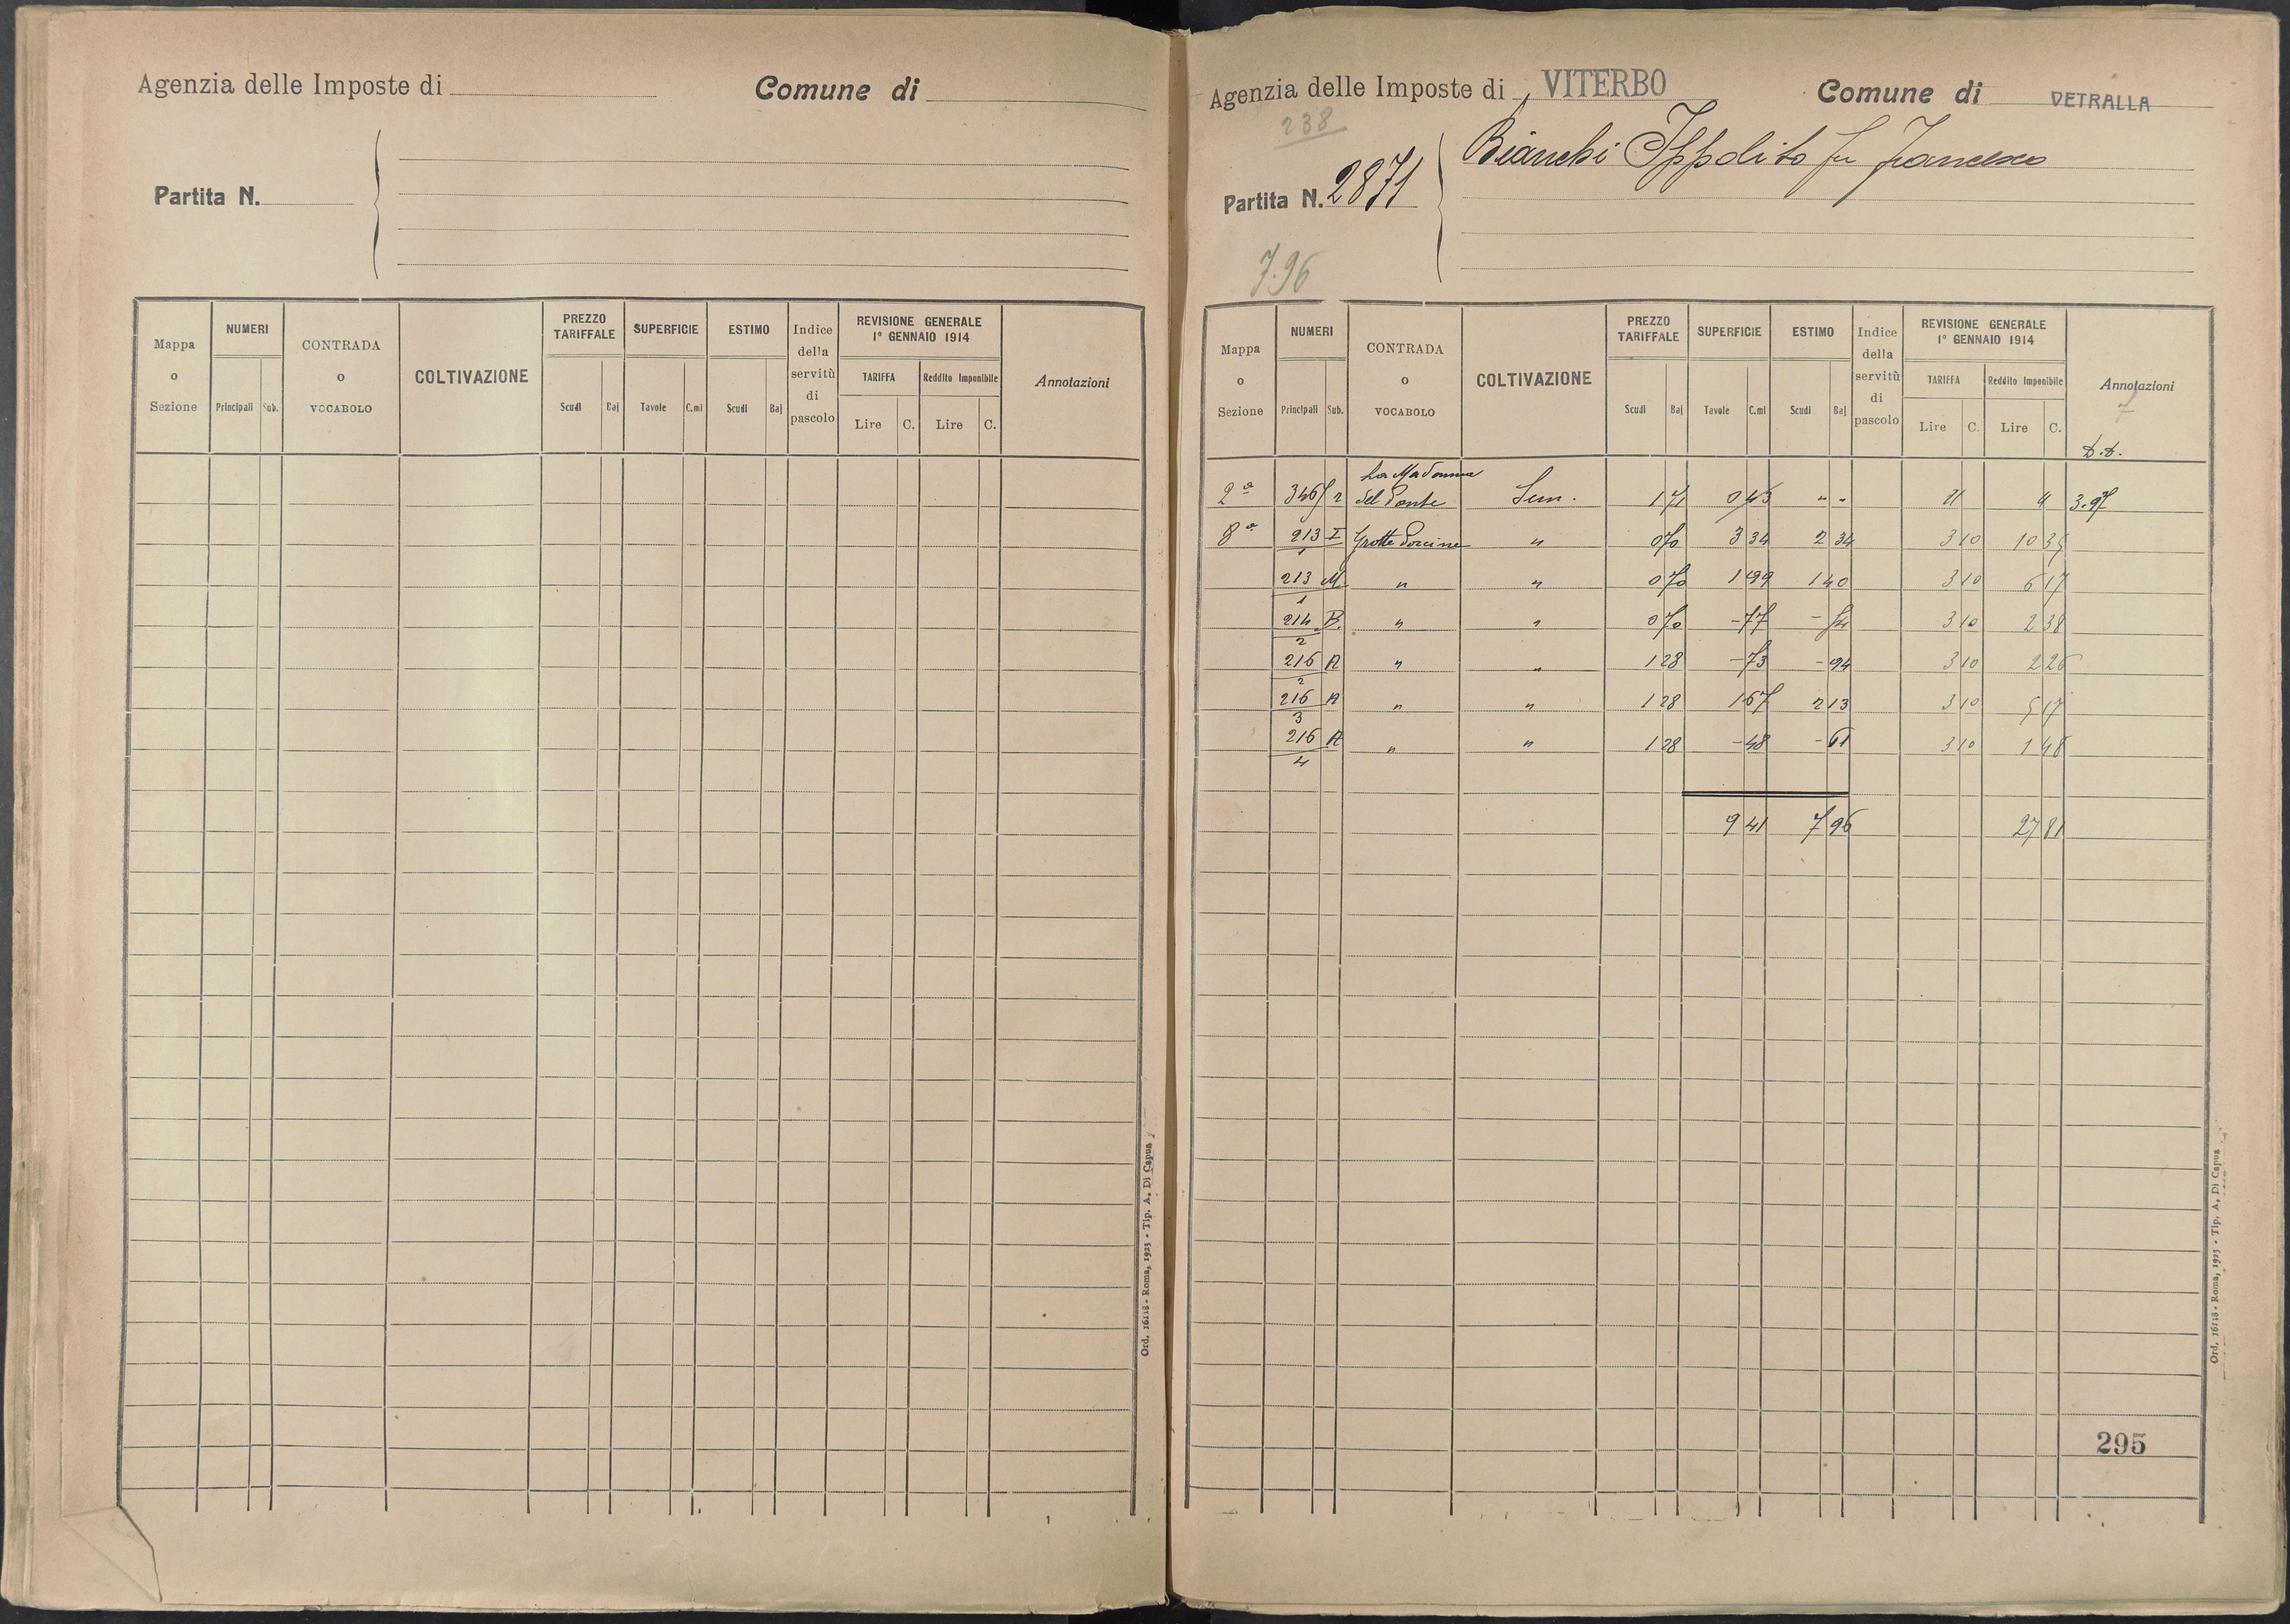 Agenzia delle Imposte di
Comune di
Partita N.
Mappa o Sezione
NUMERI
Principali Sub.
CONTRADA o VOCABOLO
COLTIVAZIONE
PREZZO TARIFFALE
Scudi Baj
SUPERFICIE
Tavole C.mi
ESTIMO
Scudi Baj
Indice della servitù di pascolo
REVISIONE GENERALE
1º GENNAIO 1914
TARIFFA Reddito Imponibile
Lire C. Lire C.
Annotazioni
Ord. 16118 - Roma, 1923 - Tip. A. Di Capua
1
Agenzia delle Imposte di VITERBO
Comune di VETRALLA
238
Partita N. 2871
Bianchi Ippolito fu Francesco
7.96
Mappa o Sezione
NUMERI
Principali Sub.
CONTRADA o VOCABOLO
COLTIVAZIONE
PREZZO TARIFFALE
Scudi Baj
SUPERFICIE
Tavole C.mi
ESTIMO
Scudi Baj
Indice della servitù di pascolo
REVISIONE GENERALE
1º GENNAIO 1914
TARIFFA Reddito Imponibile
Lire C. Lire C.
Annotazioni
7
D.D.
La Madonna
2ª del Ponte Sem. 1 71 0 43 " - 3.97
8ª 213/1 I Grotte Porcine " 0 70 3 34 2 34 3 10 10 35
213/1 M " " 0 70 1 99 1 40 3 10 6 17
214/2 B. " " 0 70 - 77 - 54 3 10 2 38
216/2 A " " 1 28 - 73 - 94 3 10 2 26
216/3 A " " 1 28 1 67 2 13 3 10 5 17
216/4 A " " 1 28 - 48 - 61 3 10 1 48
9 41 7 96 27 81
295
Ord. 16118 - Roma, 1923 - Tip. A. Di Capua